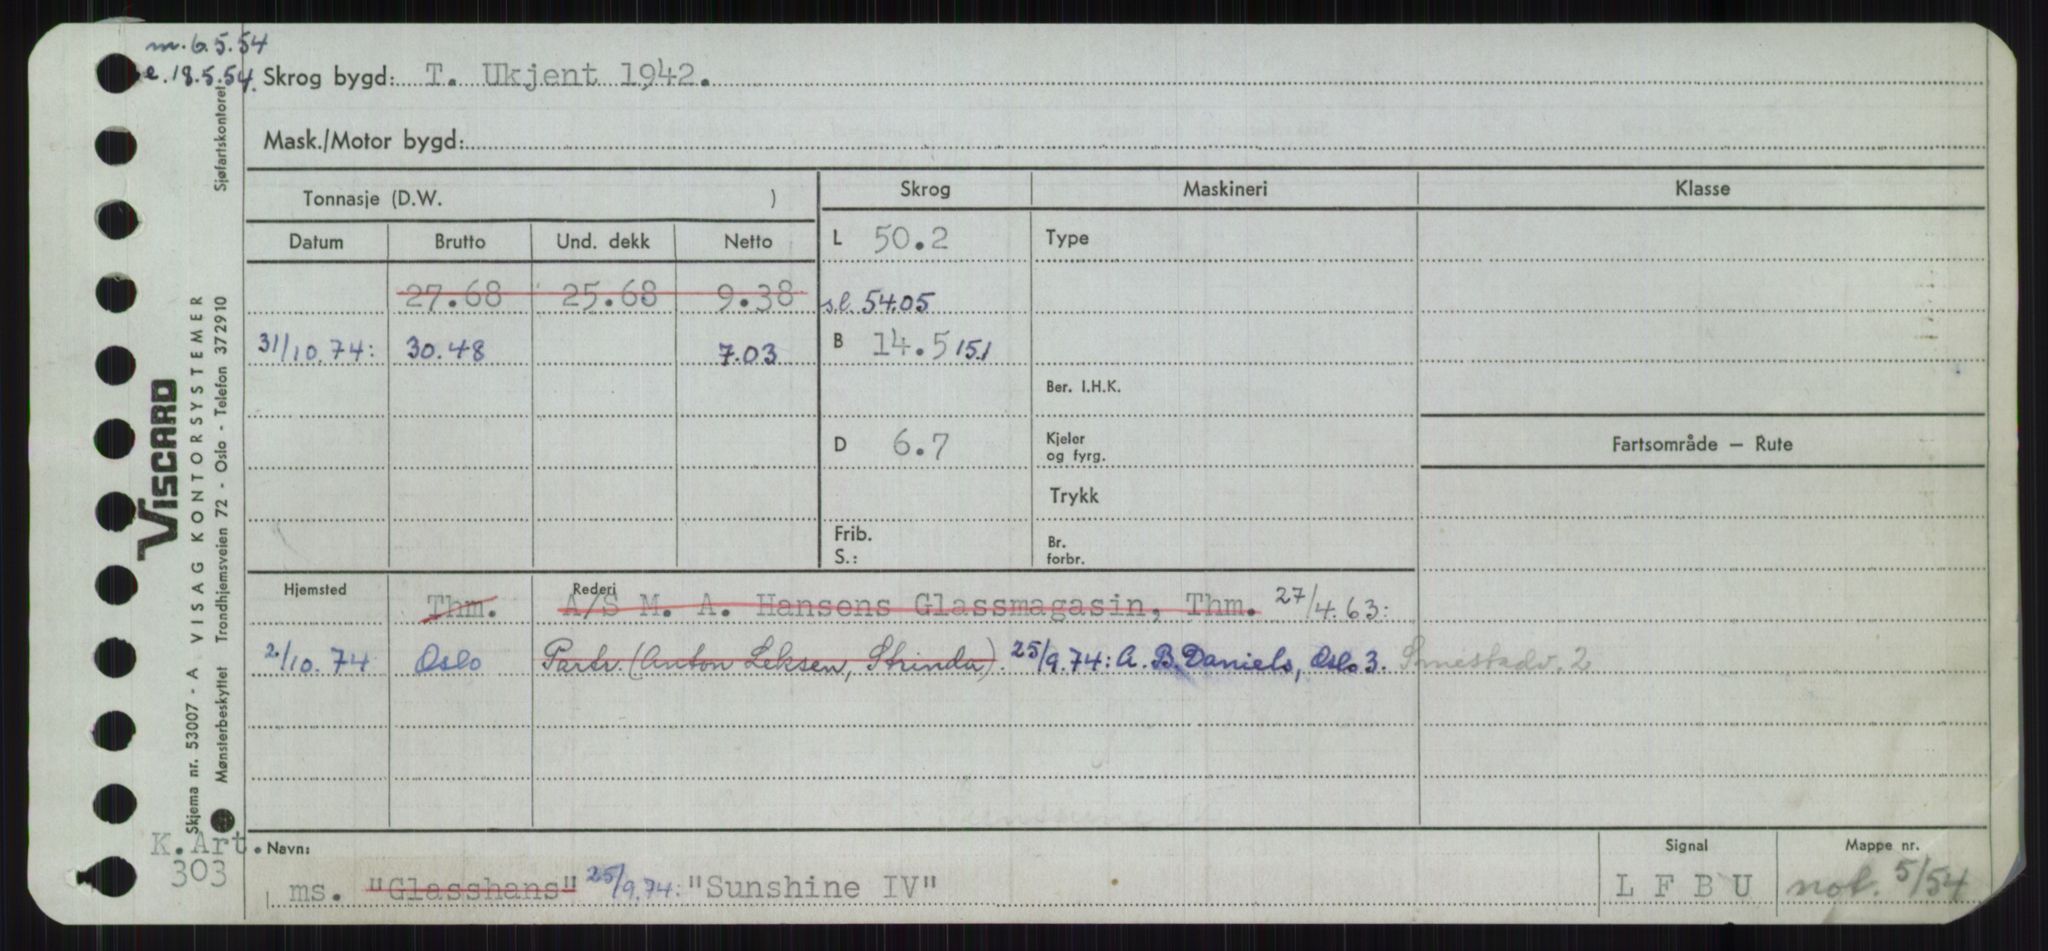 m. 6.5.54
e. 18.5.54.
Skrog bygd: T. Ukjent 1942.
Mask./Motor bygd:
Tonnasje (D.W. )
Skrog
Maskineri
Klasse
Datum Brutto Und. dekk Netto
L 50.2
Type
27.68 25.68 9.38
s.l. 54.05
31/10.74: 30.48 7.03
B 14.5 15.1
Ber. I.H.K.
D 6.7
Kjeler
og fyrg.
Fartsområde — Rute
Trykk
Frib.
S.:
Br.
forbr.
Hjemsted Thm. Rederi A/S M. A. Hansens Glassmagasin, Thm. 27/4.63:
2/10.74 Oslo Partr. (Anton Leksen, Strinda). 25/9.74: A. B. Daniels, Oslo 3. Smestadv. 2
K.Art.
303
Navn:
ms. "Glasshans" 25/9.74: "Sunshine IV"
Signal
L F B U
Mappe nr.
not. 5/54
VISCARD
Skjema nr. 53007 - A VISAG KONTORSYSTEMER
Mønsterbeskyttet Trondhjemsveien 72 - Oslo - Telefon 372910 Sjøfartskontoret